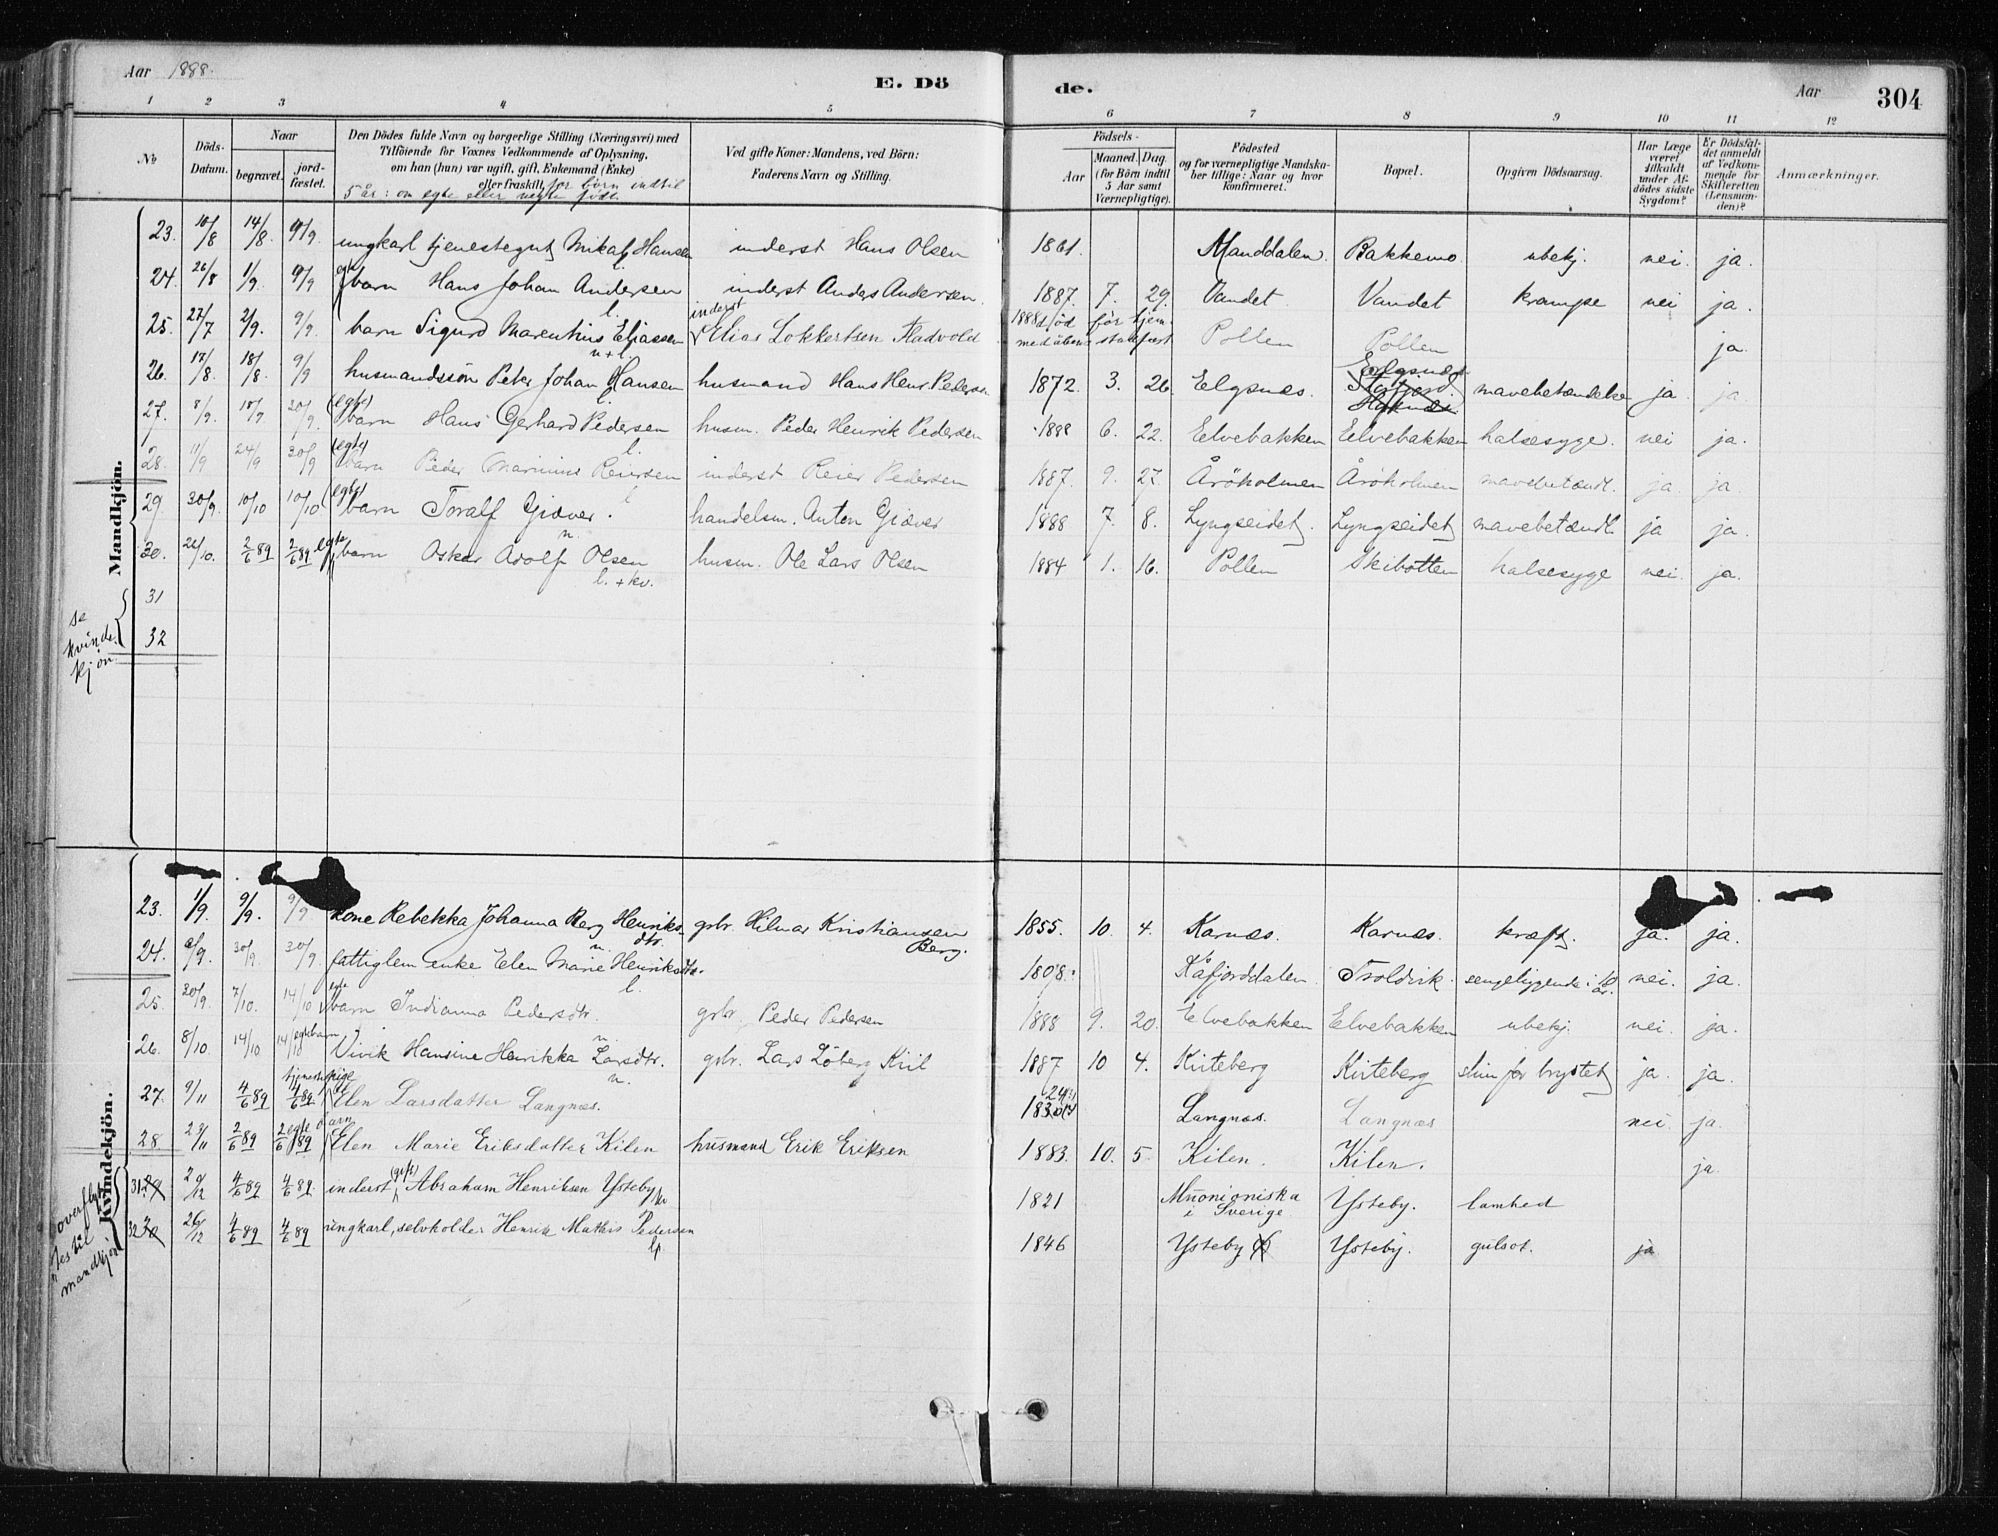 Aar 1888. E. Dö de. Aar 304
1 2 3 4 5 6 7 8 9 10 11 12
No Döds-Datum. Naar begravet. jord-fæstet. Den Dödes fulde Navn og borgerlige Stilling (Næringsvei) med Tilföiende for Voxnes Vedkommende af Oplysning, om han (han) var ugift, gift, Enkemand (Enke) eller fraskilt, for börn indtil 5 år: om egte eller uegte födt. Ved gifte Koner: Mandens, ved Börn: Faderens Navn og Stilling. Födsels- Aar Maaned. Dag. (for Börn indtil 5 Aar samt Værnepligtige). Födested og for værnepligtige Mandskaber tillige: Naar og hvor konfirmeret. Bopæl. Opgiven Dödsaarsag. Har Læge været tilkaldt under Afdödes sidste Sygdom? Er Dödsfaldet anmeldt af Vedkommende for Skifteretten (Lensmanden)? Anmærkninger.
Mandkjön.
23. 10/8 14/8. 9/9. ungkarl tjenestegut Mikal Hansen l. inderst Hans Olsen 1861. Manddalen. Bakkemo ubekj. nei. ja.
24. 26/8 1/9. 9/9 egte barn Hans Johan Andersen l. inderst Anders Andersen. 1887. 7. 29. Vandet Vandet krampe nei ja.
25. 27/7 2/9. 9/9. barn Sigurd Marenthius Eliassen n+l. inderst Elias Lokkertsen 1888 før hjem- Pollen Pollen ja.
26. 17/8. 18/8. 9/9 husmandssön Peter Johan Hansen l. husmand Hans Henr. Pedersen 1872. 3. 26. Elgsnæs. Elgsnæs mavebetændelse ja. ja.
27. 8/9. 18/9. 30/9. (egte) barn Hans Gerhard Pedersen l. husm. Peder Henrik Pedersen 1888 6. 22. Elvebakken Elvebakken halsesyge. nei ja.
28. 11/9 24/9 30/9 (egte) barn Peder Marinius Reiersen l. inderst Reier Pedersen 1887. 9. 27. Åröholmen Åröholmen mavebetændl. ja. ja.
29. 30/9. 10/10 10/10 (egte) barn Toralf Giæver. n. handelsm. Anton Giæver 1888 7. 8. Lyngseidet Lyngseidet mavebetændl. ja ja.
30. 22/10. 2/6 89 2/6 89 egte barn Oskar Adolf Olsen l. + kv. husm. Ole Lars Olsen 1884 1. 16. Pollen Skibotten halsesyge nei. ja.
31
32
se kvinde- kjön.
Kvindekjön.
23. 1/9. 9/9. 9/9. kone Rebekka Johanna Berg Henriks- dtr. n. gbr. Hilmar Kristiansen Berg. 1855. 10. 4. Karnæs. Karnæs. kræft. ja. ja.
24. 9/9. 30/9 30/9. fattiglem enke Elen Marie Henriksdtr. l. 1808. Kåfjorddalen Troldvik. sengeliggende i 18 år. nei. ja.
25. 30/9. 7/10. 14/10 egte barn Indianna Pedersdtr. n. gbr. Peder Pedersen 1888 9. 20. Elvebakken Elvebakken ubekj. nei. ja.
26. 8/10. 14/10 14/10 egte barn Vivik Hansine Henrikka Larsdtr. n. gbr. Lars Löberg Kiil 1887 10 4. Kviteberg Kviteberg slim for brystet ja. ja.
27. 9/11 4/6 89 4/6 89. tjenestepige Elen Larsdatter Langnæs. 1830 Langnæs. Langnæs nei. ja.
28. 23/11 2/6 89 2/6 89 egte barn Elen Marie Eriksdatter Kilen husmand Erik Eriksen 1883. 10. 5. Kilen. Kilen. ja.
31 29 20/12 4/6 89 4/6 89. inderst (gift) Abraham Henriksen Ysteby kv 1821 Muonioniska i Sverige Ysteby. lamhed
32 30 26/12 4/6 89 4/6 89 ungkarl, selvholder Henrik Mathis Pedersen lp. 1846 Ysteby Ysteby. gulsot. ja
overflyt- tes til mandkjön